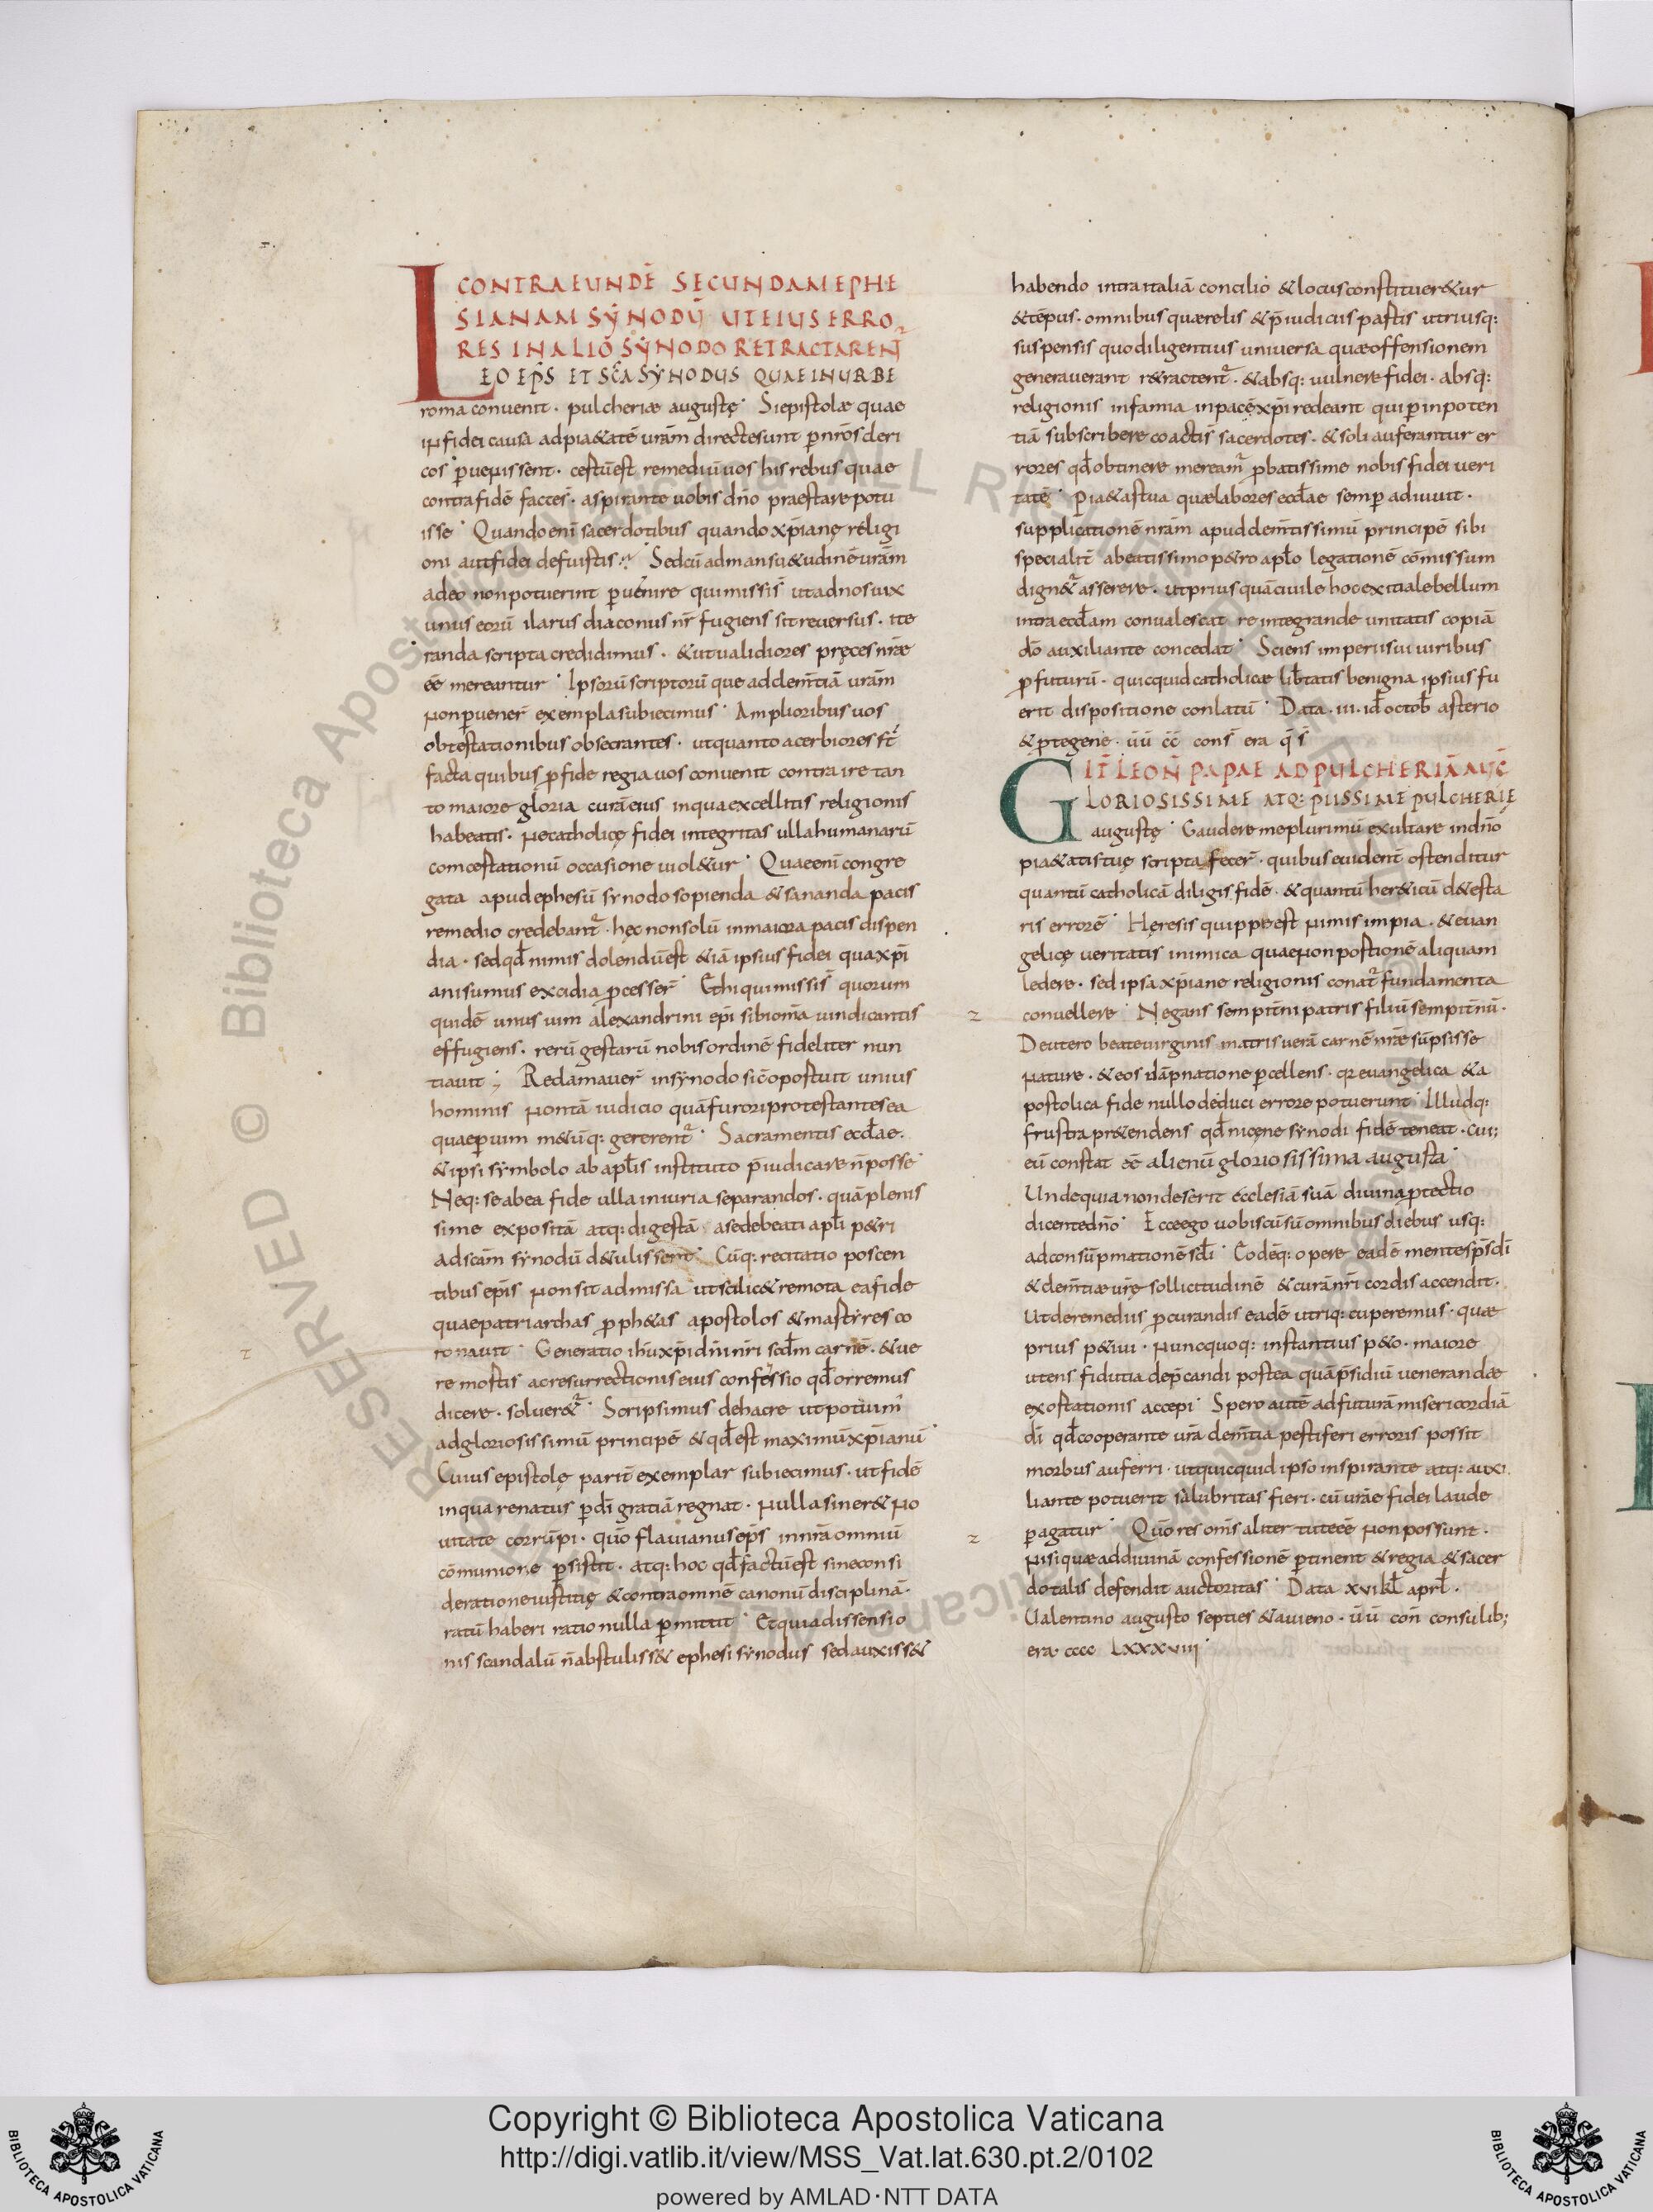 CONTRA EUNDĒ SECUNDAM EPHE
SIANAM SẎNODŪ UT EIUS ERRO
RES IN ALIO SẎNODO RETRACTARENT
LEO EP̄S ET SC̄A SẎNODUS QUAE IN URBE
roma convenit · pulcheriæ augustę · Si epistolæ quae
in fidei causa ad pia&atē urām directe sunt p̄ nr̄os cleri
cos p̄uenissent · cestū est remediū uos his rebus quae
contra fidē factȩ s̄ · aspirante uobis dn̄o praestare potu
isse · Quando enī sacerdotibus quando xp̄ianę religi
oni aut fidei defuistis · Sed cū ad mansu&udinē urām
adeo non potuerint p̄uenire qui missi s̄ ut ad nos uix
unus eorū ilarus diaconus nr̄ fugiens sit reuersus · ite
randa scripta credidimus · &ut ualidiores pręces nr̄æ
ēē mereantur · Ipsorū scriptorū que ad clem̄tiā urām
non p̄uener̄ exempla subiecimus · Amplioribus uos
obtestationibus obsecrantes · ut quanto acerbiores st̄
facta quibus p̄ fide regia uos conuenit contraire tan
to maiore gloria curā eius in qua excellitis religionis
habeatis · ne catholicę fidei integritas ulla humanarū
comcestationū occasione uiol&ur · Quae enī congre
gata apud ephesū synodo sopienda & sananda pacis
remedio credebant̄ · hęc non solū in maiora pacis dispen
dia · sed qđ nimis dolendū est &iā ipsius fidei qua xp̄i
ani sumus excidia p̄cesser̄ · Et hi qui missi s̄ quorum
quidē unus uim alexandrini ep̄i sibi om̄a uindicantis
effugiens · rerū gestarū nobis ordinē fideliter nun
tiauit ; Reclamauer̄ in sẏnodo sic̄ opostuit unius
hominis non tā iudicio quā furori protestantes ea
quae p̄ uim m&ūq: gererent̄ · Sacramentis eccłae ·
&ipsi sẏmbolo ab apłis instituto p̄iudicare n̄ posse ·
Neq: se ab ea fide ulla iniuria separandos · quā plenis
sime expositā atq: digestā a sede beati apłi p&ri
ad scām synodū d&ulissent · Cūq: recitatio poscen
tibus ep̄is non sit admissa ut scilic& remota ea fide
quae patriarchas p̄ph&as apostolos & mastẏres co
ronauit · Generatio ih̄u xp̄i dn̄i nr̄i scđm carnē · & ue
re mostis ac resurrectionis eius confessio qđ orremus
dicere · soluer&̄ · Scripsimus de hac re ut potuim̄
ad gloriosissimū principē & qđ est maximū xp̄ianū ·
Cuius epistolę parit̄ exemplar subiecimus · ut fidē
in qua renatus p̄ dī gratiā regnat · nulla siner& no
uitate corrūpi · quo flauianus ep̄s in nr̄a omniū
cōmunione p̄sistit · atq: hoc qđ factū est sine consi
deratione iustitię & contra omnē canonū disciplinā ·
ratū haberi ratio nulla p̄mittit · Et quia dissensio
nis scandalū n̄ abstuliss& ephesi sẏnodus sed auxiss&
habendo intra italiā concilio & locus constituer&ur
&tēpus · omnibus quærelis & p̄iudiciis pastis utriusq:
suspensis quo diligentius universa quæ offensionem
generauerant r&ractent̄ · & absq: uulnere fidei · absq:
religionis infamia in pacē xp̄i redeant qui p̄ inpoten
tiā subscribere coacti s̄ sacerdotes · & soli auferantur er
rores qđ obtinere meream̄ p̄batissime nobis fidei ueri
tatē · Pia&as tua quæ labores eccłae semp̄ adiuuit ·
supplicationē nr̄am apud clem̄tissimū principē sibi
specialit̄ a beatissimo p&ro apłō legationē cōmissum
dign&̄ asserere · ut prius quā ciuile hoc exitiale bellum
intra eccłam conualescat reintegrande unitatis copiā
dō auxiliante concedat · Sciens imperii sui uiribus
p̄futurū · quicquid catholicæ lib̄tatis benigna ipsius fu
erit dispositione conlatū · Data · iii · iđ octob̄ asterio
& p̄tegene · ūū c̄c̄ cons̄ era q̄ s̄
IT̄ LEON̄ PAPAE AD PULCHERIĀ AUG̅
GLORIOSISSIME ATQ: PIISSIME PULCHERIĘ
augustę · Gaudere me plurimū exultare in dn̄o
pia&atis tuę scripta fecer̄ · quibus euident̄ ostenditur
quantū catholicā diligis fidē · & quantū her&icū d&esta
ris errorē · Hęresis quippe est nimis impia · & euan
gelicę ueritatis inimica quae non postionē aliquam
ledere · sed ipsa xp̄iane religionis conat̄ fundamenta
conuellere · Negans sempit̄ni patris filiū sempit̄nū ·
De utero beate uirginis matris uerā carnē nr̄æ sūpsisse
nature · & eos dāpnatione p̄cellens · qr euangelica & a
postolica fide nullo deduci errore potuerunt · Illudq:
frustra pr&endens qđ nicęne synodi fidē teneat · cui;
eū constat ēē alienū gloriosissima augusta ·
Unde quia non deserit ecclesiā suā diuina p̄tectio
dicente dn̄o · Ecce ego uobiscū sū omnibus diebus usq:
ad consūpmationē sc̄łi · Eodēq: opere eadē mente sp̄s dī
& clem̄tiæ ur̄ę sollicitudinē & curā nr̄i cordis accendit ·
Ut de remediis p̄curandis eadē utriq: cuperemus · quæ
prius p&iui · nunc quoq: instantius p&o · maiore
utens fidutia dep̄candi postea quā p̄sidiū uenerandæ
exostationis accepi · Spero autē ad futurā misericordiā
dī qđ cooperante ur̄a clem̄tia pestiferi erroris possit
morbus auferri · ut quicquid ipso inspirante atq: auxi
liante potuerit salubritas fieri · cū ur̄æ fidei laude
p̄agatur · Quo res om̄s aliter tute ēē non possunt ·
nisi quæ ad diuinā confessionē p̄tinent & regia & sacer
dotalis defendit auctoritas · Data xvi kł aprł ·
Ualentino augusto septies & auieno · ūū con̄ consulib;
era · cccc Lxxxviii ·
Copyright © Biblioteca Apostolica Vaticana
http://digi.vatlib.it/view/MSS_Vat.lat.630.pt.2/0102
powered by AMLAD·NTT DATA
BIBLIOTECA APOSTOLICA VATICANA
BIBLIOTECA APOSTOLICA VATICANA